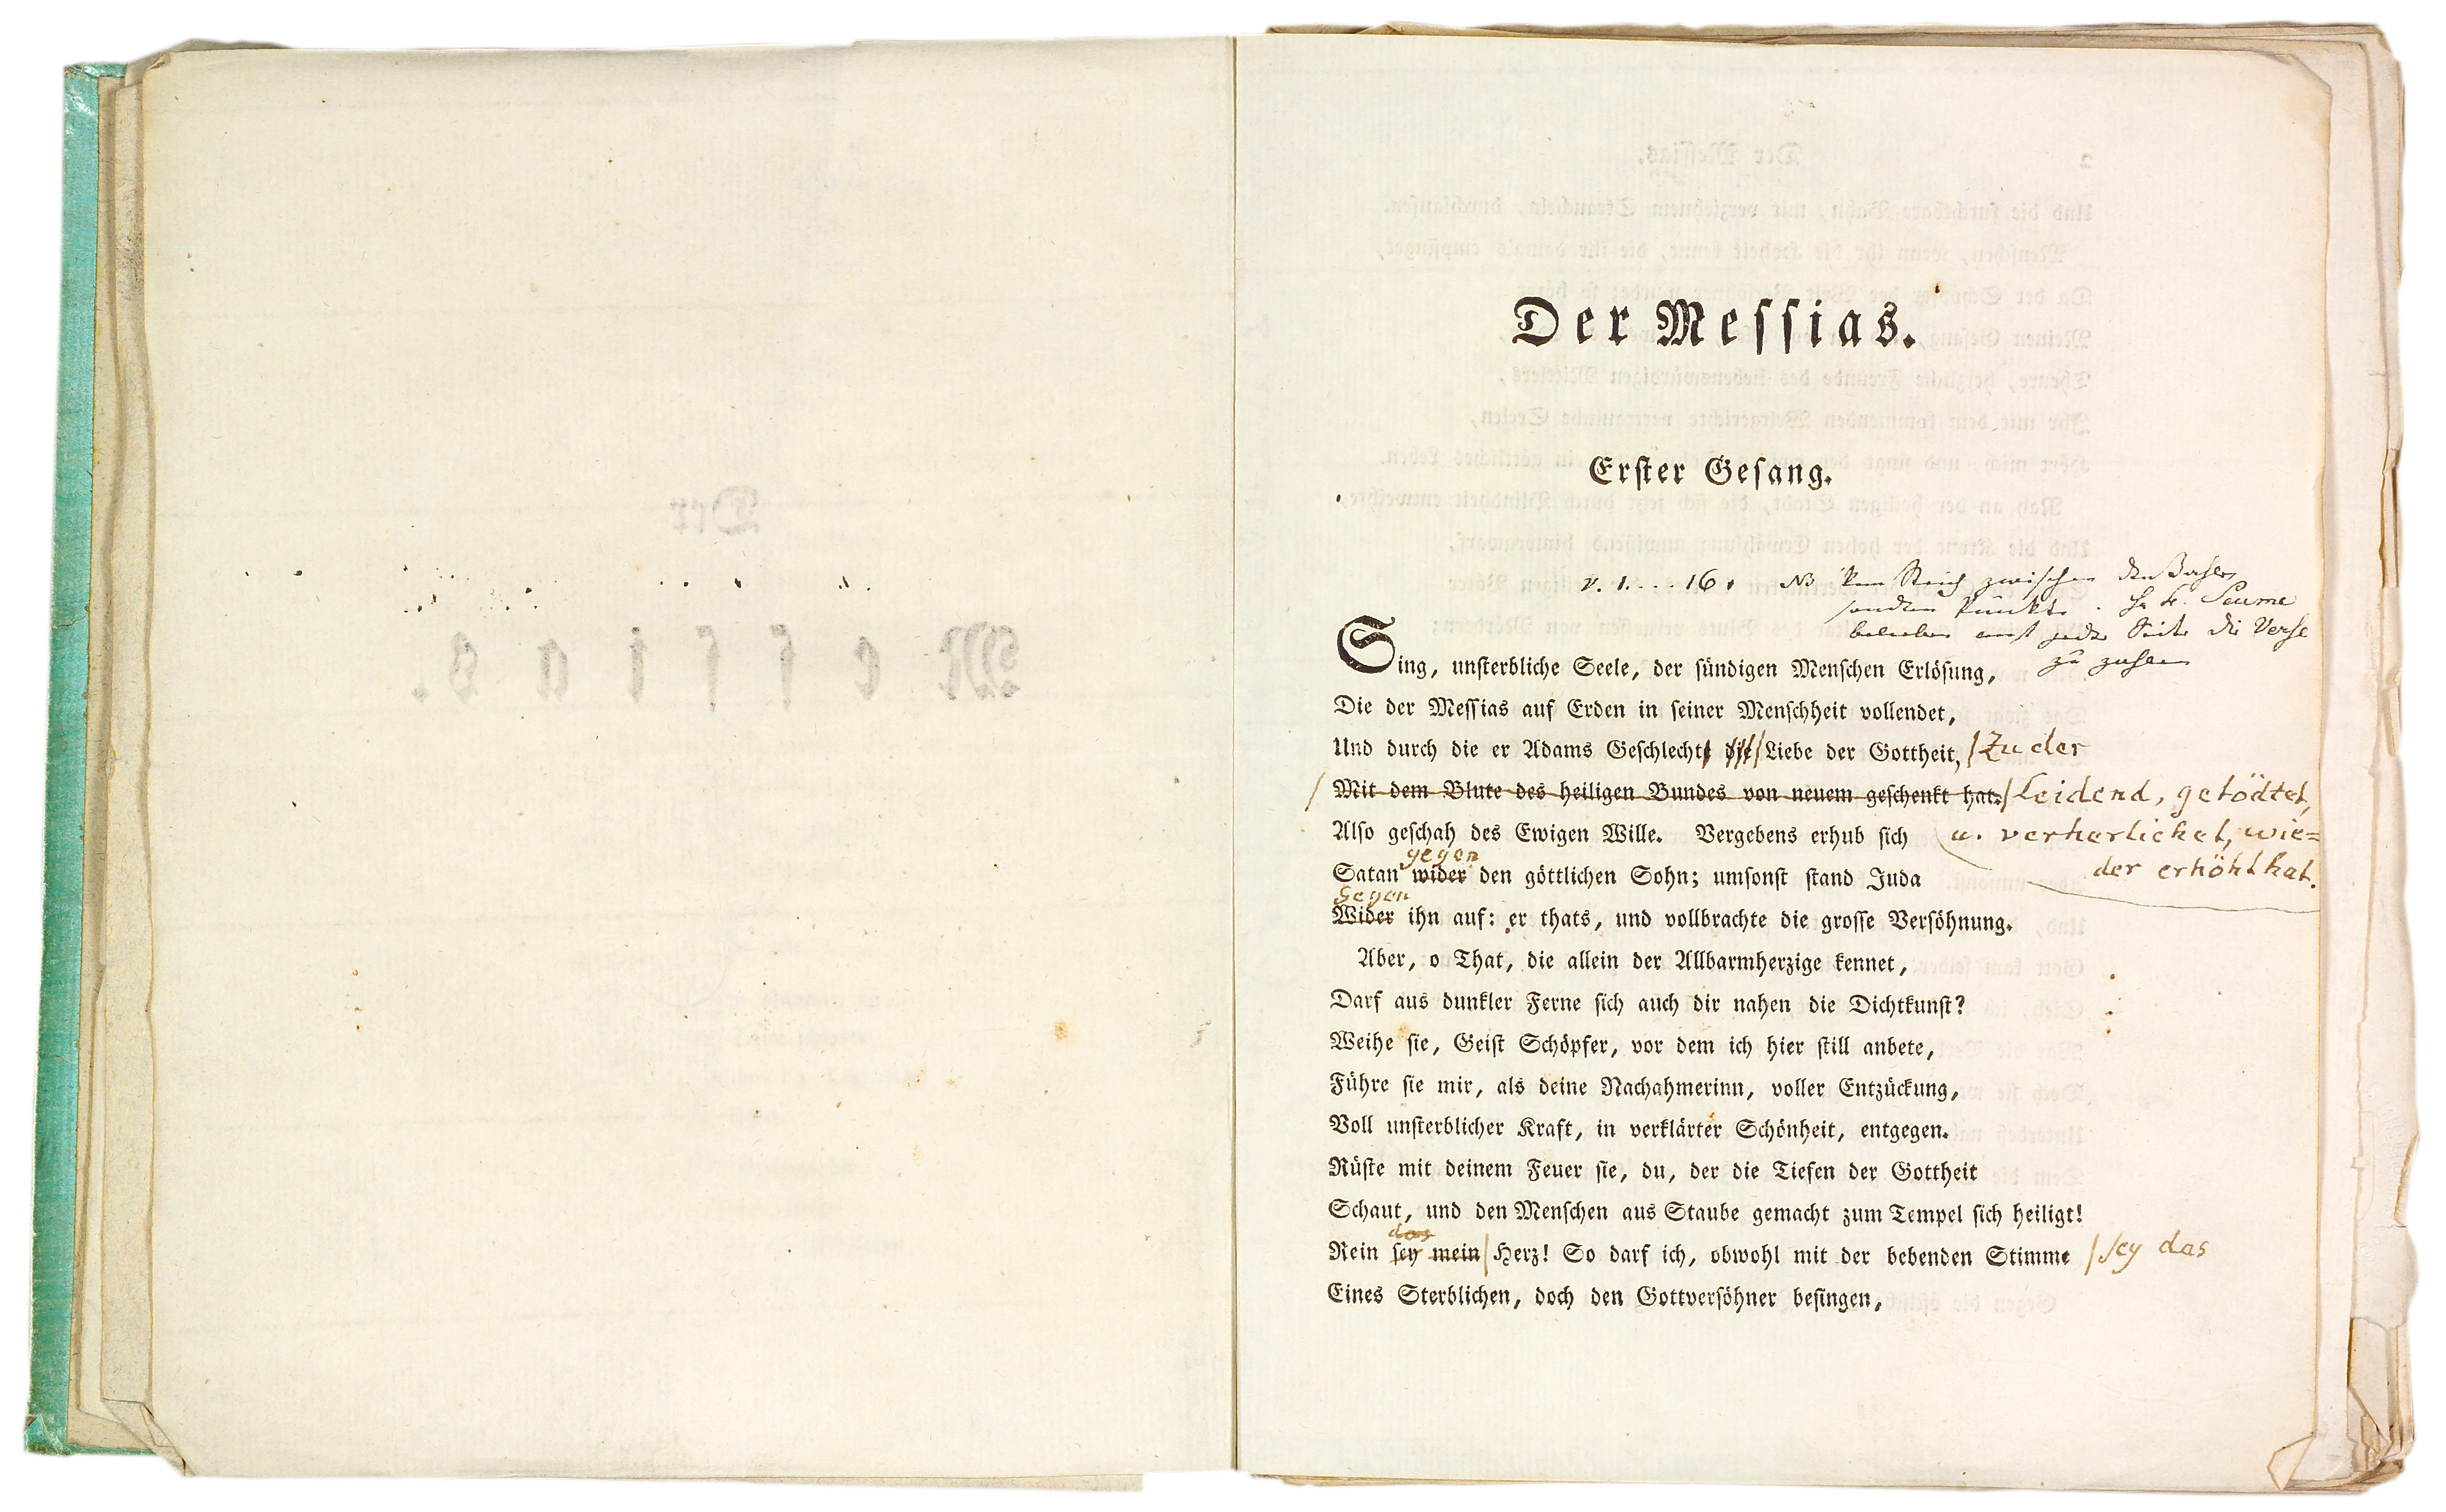 Der Messias.
Erster Gesang.
v. 1. . . . 16. NB Kein Strich zwischen den
sondern Punkte. Seume
belieben jede Seite die Verse
zu
Sing, unsterbliche Seele, der sündigen Menschen Erlösung,
Die der Messias auf Erden in seiner Menschheit vollendet,
Und durch die er Adams Geschlecht die Liebe der Gottheit, /Zu der
Mit dem Blute des heiligen Bundes von neuem geschenkt hat. /Leidend, getödtet,
Also geschah des Ewigen Wille. Vergebens erhub sich u. verherlichet, wie=
gegen der erhöht hat.
Satan wider den göttlichen Sohn; umsonst stand Juda
Gegen
Wider ihn auf: er thats, und vollbrachte die grosse Versöhnung.
Aber, o That, die allein der Allbarmherzige kennet,
Darf aus dunkler Ferne sich auch dir nahen die Dichtkunst?
Weihe sie, Geist Schöpfer, vor dem ich hier still anbete,
Führe sie mir, als deine Nachahmerinn, voller Entzückung,
Voll unsterblicher Kraft, in verklärter Schönheit, entgegen.
Rüste mit deinem Feuer sie, du, der die Tiefen der Gottheit
Schaut, und den Menschen aus Staube gemacht zum Tempel sich heiligt!
das
Rein sey mein Herz! So darf ich, obwohl mit der bebenden Stimme /sey das
Eines Sterblichen, doch den Gottversöhner besingen,